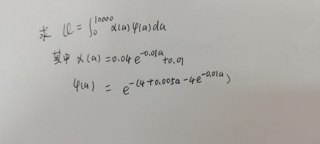 求 Q = ∫₀¹⁰⁰⁰⁰ α(a) φ(a) da
其中 α(a) = 0.04e^{-0.01a} + 0.01
φ(a) = e^{-(4+0.005a-4e^{-0.01a})}